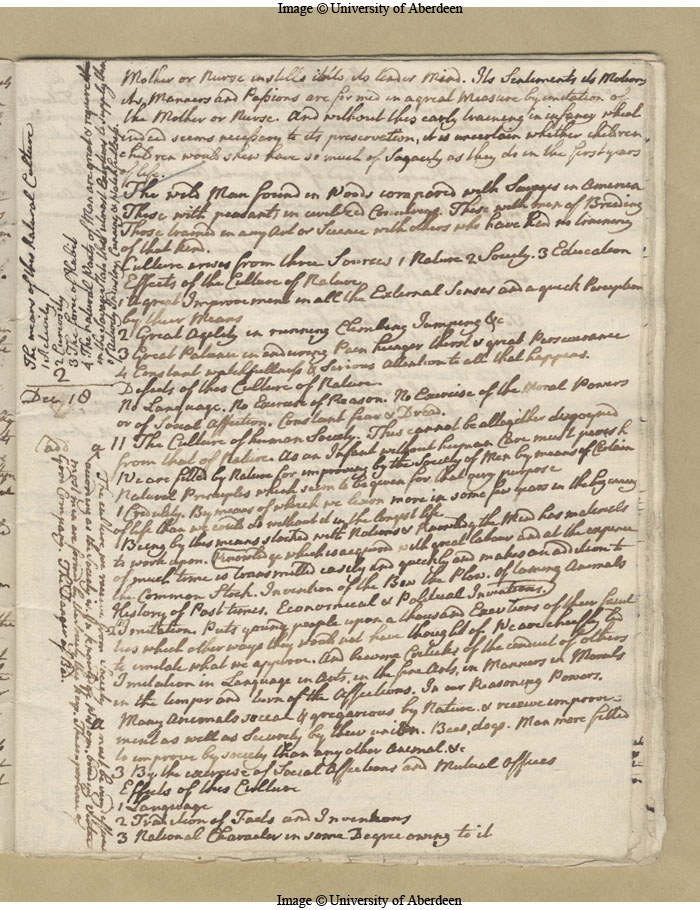 Image © University of Aberdeen
Mother or Nurse instills into its tender Mind. Its Sentiments its Motions
its, Manners and Passions are formed in a great Measure by imitation of
the Mother or Nurse. And without this early training in infancy which
indeed seems necessary to its preservation, it is uncertain whether children
children would shew have so much of Sagacity as they do in the first years
of life.
The wild Man found in Woods compared with Savages in America
These with peasants in civilized Countrys. These with men of Breeding
Those trained in any Art or Science with others who have had no training
of that kind.
Culture arises from three Sources 1 Nature 2 Society. 3 Education
Effects of the Culture of Nature
1 great Improvement in all the External Senses and a quick Perception
by their Means
2 Great Agility in running Climbing Jumping &c
3 Great Patience in enduring Pain hunger thirst & great Perseverance
4 Constant watchfullness & Serious Attention to all that happens.
Defects of this Culture of Nature.
No Language. No Exercise of Reason. No Exercise of the Moral Powers
or of Social Affection. Constant fear & Dread.
11 The Culture of human Society. This cannot be altogether disjoyned
from that of Nature. As an Infant without human Care must perish
We are fitted by Nature for improving by the Society of Men by means of Certain
Natural Principles which seem to be given for that very purpose
1 Credulity. By means of which we learn more in some few years in the beginning
of life than we could do without it in the longest life.
Being by this means stocked with Notions & Knowledge the Mind has materials
to work upon. Knowledge which is acquired with great labour and at the expence
of much time is transmitted easily and quickly and makes an addition to
the Common Stock. Invention of the Bow the Plow. Of taming Animals
History of Past times. Economical & Political Inventions.
2 Imitation. Puts young people upon a thousand Exertions of their facul
ties which other ways they would not have thought of. We are chiefly led
to imitate what we approve. And become Criticks of the conduct of others
Imitation in Language in Arts, in the fine Arts, in Manners in Morals
in the temper and turn of the Affections. In our Reasoning Powers.
Many Animals social & gregarious by Nature. & receive improve-
ment as well as Security by their union. Bees, dogs. Man more fitted
to improve by society than any other Animal. &c
3 By the exercise of Social Affections and Mutual Offices
Effects of this Culture
1 Language
2 Tradition of Facts and Inventions
3 National Character in some Degree owing to it
The means of this Natural Culture
1 Activity
2 Curiosity
3 The Force of Habit
4 The natural Wants of Man are great & require
Decr 18
Image © University of Aberdeen